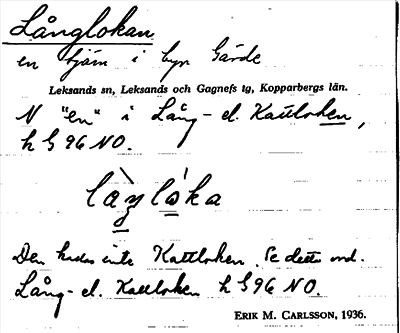 Långlokan
en tjärn i byn Gärde
Leksands sn, Leksands och Gagnefs tg, Kopparbergs län.
N "en" i Lång- el. Kattloken,
h G 96 NO.
Den kallas inte Kattloken. Se detta ord.
Lång- el. Kattloken h G 96 NO.
ERIK M. CARLSSON, 1936.